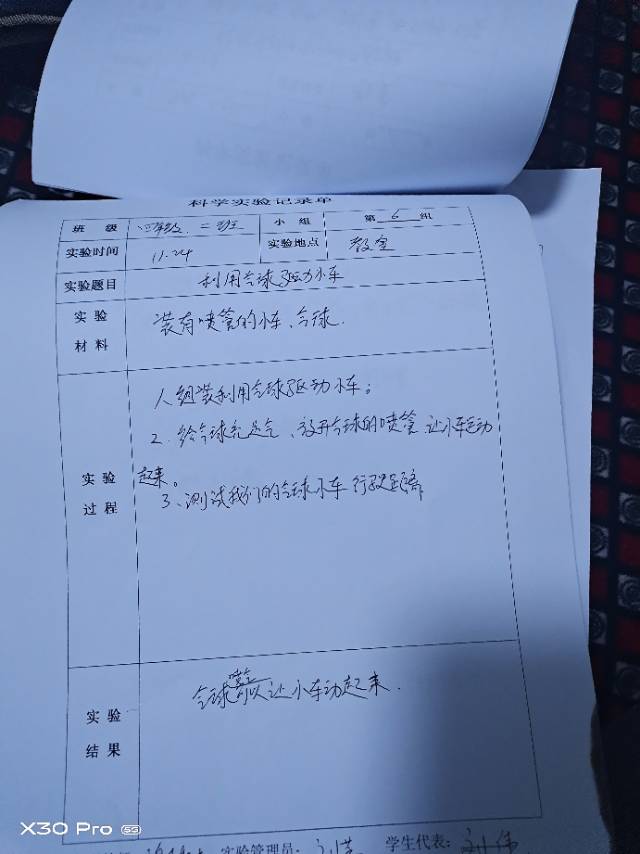 科学实验记录单
班 级 四年级 二班 小 组 第 6 组
实验时间 11.24 实验地点 教室
实验题目 利用气球驱动小车
实验材料 装有喷管的小车、气球.
实验过程
1、组装利用气球驱动小车;
2、给气球充足气、放开气球的喷管 让小车运动
起来。
3、测试我们的气球小车行驶距离
实验结果
气球可以让小车动起来.
实验管理员:
学生代表:
X30 Pro 5G